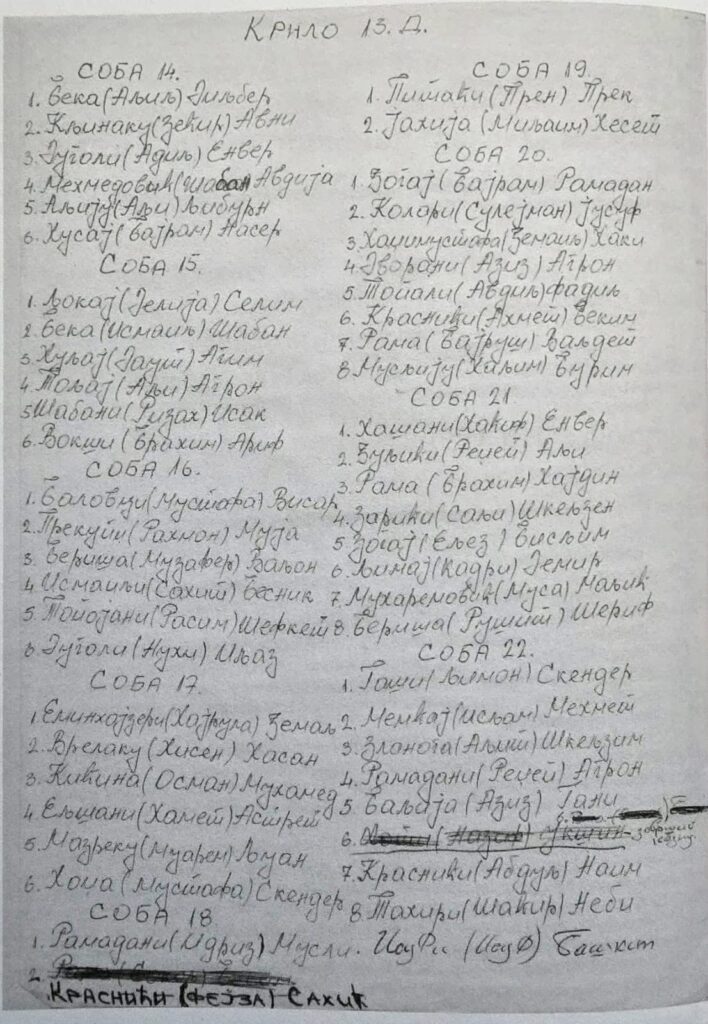 КРИЛО 13. Д.
СОБА 14.
1. Бека (Аљиљ) Гиљбер
2. Кљинаку (Зекир) Авни
3. Гуголи (Адиљ) Енвер
4. Мехмедовић (Шабан Авдија
5. Аљију (Аљи) Љибурн
6. Хусај (Бајрам) Насер
СОБА 15.
1. Ђокај (Делија) Селим
2. Бека (Исмаиљ) Шабан
3. Хуљај (Даут) Агим
4. Тољај (Аљи) Агрон
5 Шабани (Ризах) Исак
6. Вокши (Брахим) Ариф
СОБА 16.
1. Баловци (Мустафа) Висар
2. Прекупи (Рахмон) Муја
3. Бериша (Музафер) Ваљон
4 Исмаиљи (Сахит) Бесник
5 Топојани (Расим) Шефкет
6. Гуголи (Нухи) Иљаз
СОБА 17.
1. Еминхајзери (Хајрула) Џемаљ
2. Врелаку (Хисен) Хасан
3. Кићина (Осман) Мухамед
4 Ељшани (Хамет) Астрет
5. Мазреку (Муарем) Љуан
6. Хоџа (Мустафа) Скендер
СОБА 18
1. Рамадани (Идриз) Мусли.
2.
КРАСНИЋИ (ФЕЈЗА) САХИТ
СОБА 19.
1. Питаћи (Прен) Прек
2. Јахија (Миљаим) Хесет
СОБА 20.
1. Зогај (Бајрам) Рамадан
2. Колари (Сулејман) Јусуф
3. Хаџимустафа (Џемаиљ) Хаки
4. Дворани (Азиз) Агрон
5. Топали (Авдиљ) Фадиљ
6. Красниќи (Ахмет) Беким
7. Рама (Бајруш) Ваљдет
8 Муслију (Хаљим) Бурим
СОБА 21
1. Хашани (Хакиф) Енвер
2. Буљиќи (Реџеп) Аљи
3. Рама (Брахим) Хајдин
4. Зариќи (Саљи) Шкељзен
5 Зогај (Ељез) Бисљим
6. Љимај (Кадри) Демир
7. Мухаремовић (Муса) Маљић
8. Бериша (Рушит) Шериф
СОБА 22.
1. Гаши (Љимон) Скендер
2. Мемкај (Исљам) Мехмет
3. Зланога (Аљит) Шкељзим
4. Рамадани (Реџеп) Агрон
5 Баљија (Азиз) Гани
6. (Назиф) Укшин
7. Красниќи (Абдуљ) Наим
8. Тахири (Шаћир) Неби
Башкит